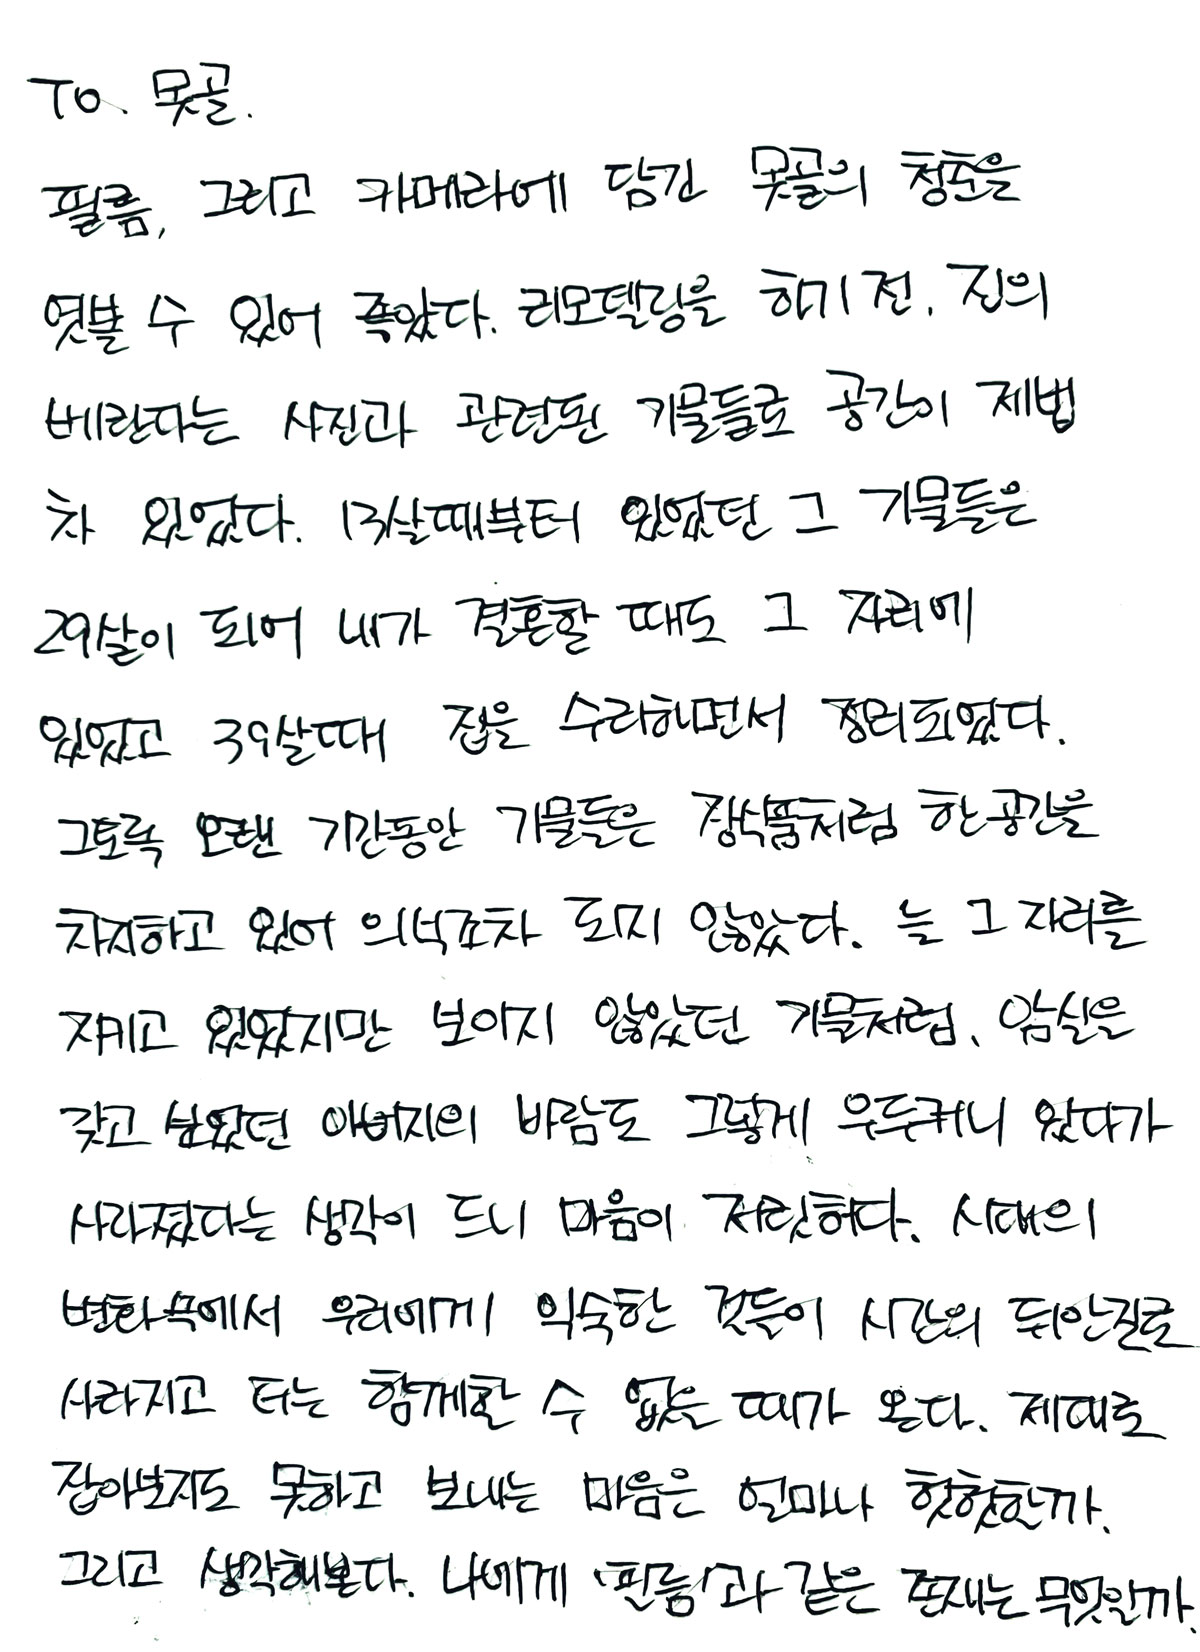 To. 못골.
필름, 그리고 카메라에 담긴 못골의 청춘을
엿볼 수 있어 좋았다. 리모델링을 하기 전, 집의
베란다는 사진과 관련된 기물들로 공간이 제법
차 있었다. 13살때부터 있었던 그 기물들은
29살이 되어 내가 결혼할 때도 그 자리에
있었고 39살때 집을 수리하면서 정리되었다.
그토록 오랜 기간동안 기물들은 장식품처럼 한공간을
차지하고 있어 의식조차 되지 않았다. 늘 그 자리를
지키고 있었지만 보이지 않았던 기물처럼, 암실을
갖고 싶었던 아버지의 바람도 그렇게 우두커니 있다가
사라졌다는 생각이 드니 마음이 저릿하다. 시대의
변화속에서 우리에게 익숙한 것들이 시간의 뒤안길로
사라지고 더는 함께할 수 없을 때가 온다. 제대로
잡아보지도 못하고 보내는 마음은 얼마나 헛헛할까.
그리고 생각해본다. 나에게 '필름'과 같은 존재는 무엇일까.